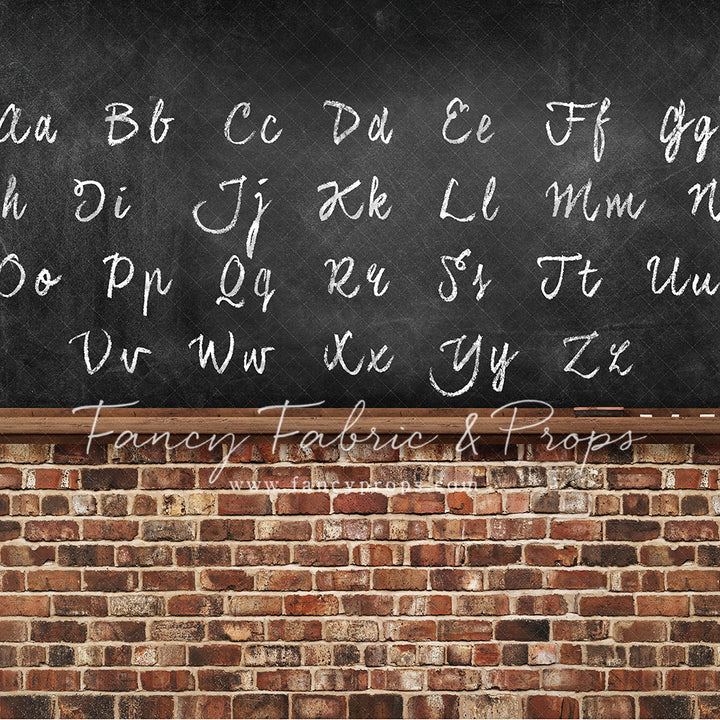 Aa Bb Cc Dd Ee Ff Gg
h Ii Jj Kk Ll Mm N
Oo Pp Qq Rr Ss Tt Uu
Vv Ww Xx Yy Zz
Fancy Fabric & Props
www.fancyprops.com